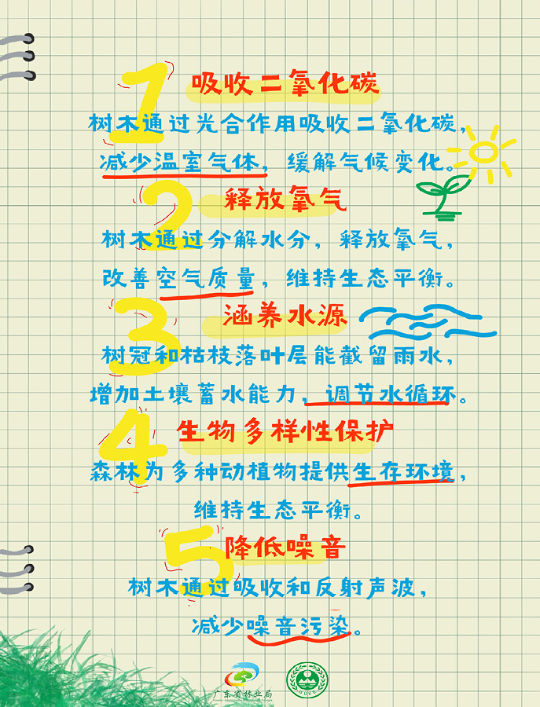 1 吸收二氧化碳
树木通过光合作用吸收二氧化碳,
减少温室气体,缓解气候变化。
2 释放氧气
树木通过分解水分,释放氧气,
改善空气质量,维持生态平衡。
3 涵养水源
树冠和枯枝落叶层能截留雨水,
增加土壤蓄水能力,调节水循环。
4 生物多样性保护
森林为多种动植物提供生存环境,
维持生态平衡。
5 降低噪音
树木通过吸收和反射声波,
减少噪音污染。
广东省林业局